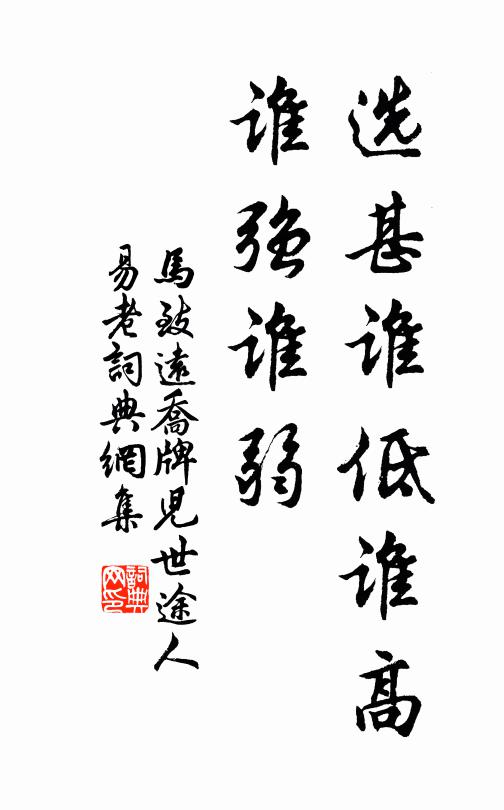 选甚谁低谁高
谁强谁弱
馬致遠喬牌兒世途人
易老詞典網集
詞典
网印